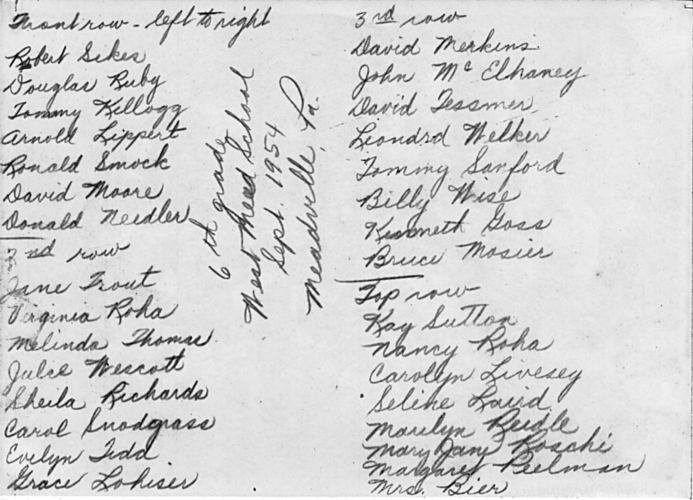 Front row - left to right
Robert Sikes
Douglas Ruby
Tommy Kellogg
Arnold Lippert
Ronald Smock
David Moore
Donald Needler
2nd row
Jane Trout
Virginia Roha
Melinda Thomas
Julie Wescott
Sheila Richards
Carol Snodgrass
Evelyn Tidd
Grace Lohiser
6th grade
West Mead School
Sept. 1954
Meadville, Pa.
3rd row
David Merkins
John McElhaney
David Tessmer
Leonard Welker
Tommy Sanford
Billy Wise
Kenneth Goss
Bruce Mosier
Top row
Kay Sutton
Nancy Roha
Carolyn Livesey
Selene Laird
Marilyn Reidle
Mary Jane Roschi
Margaret Peelman
Mrs. Bier